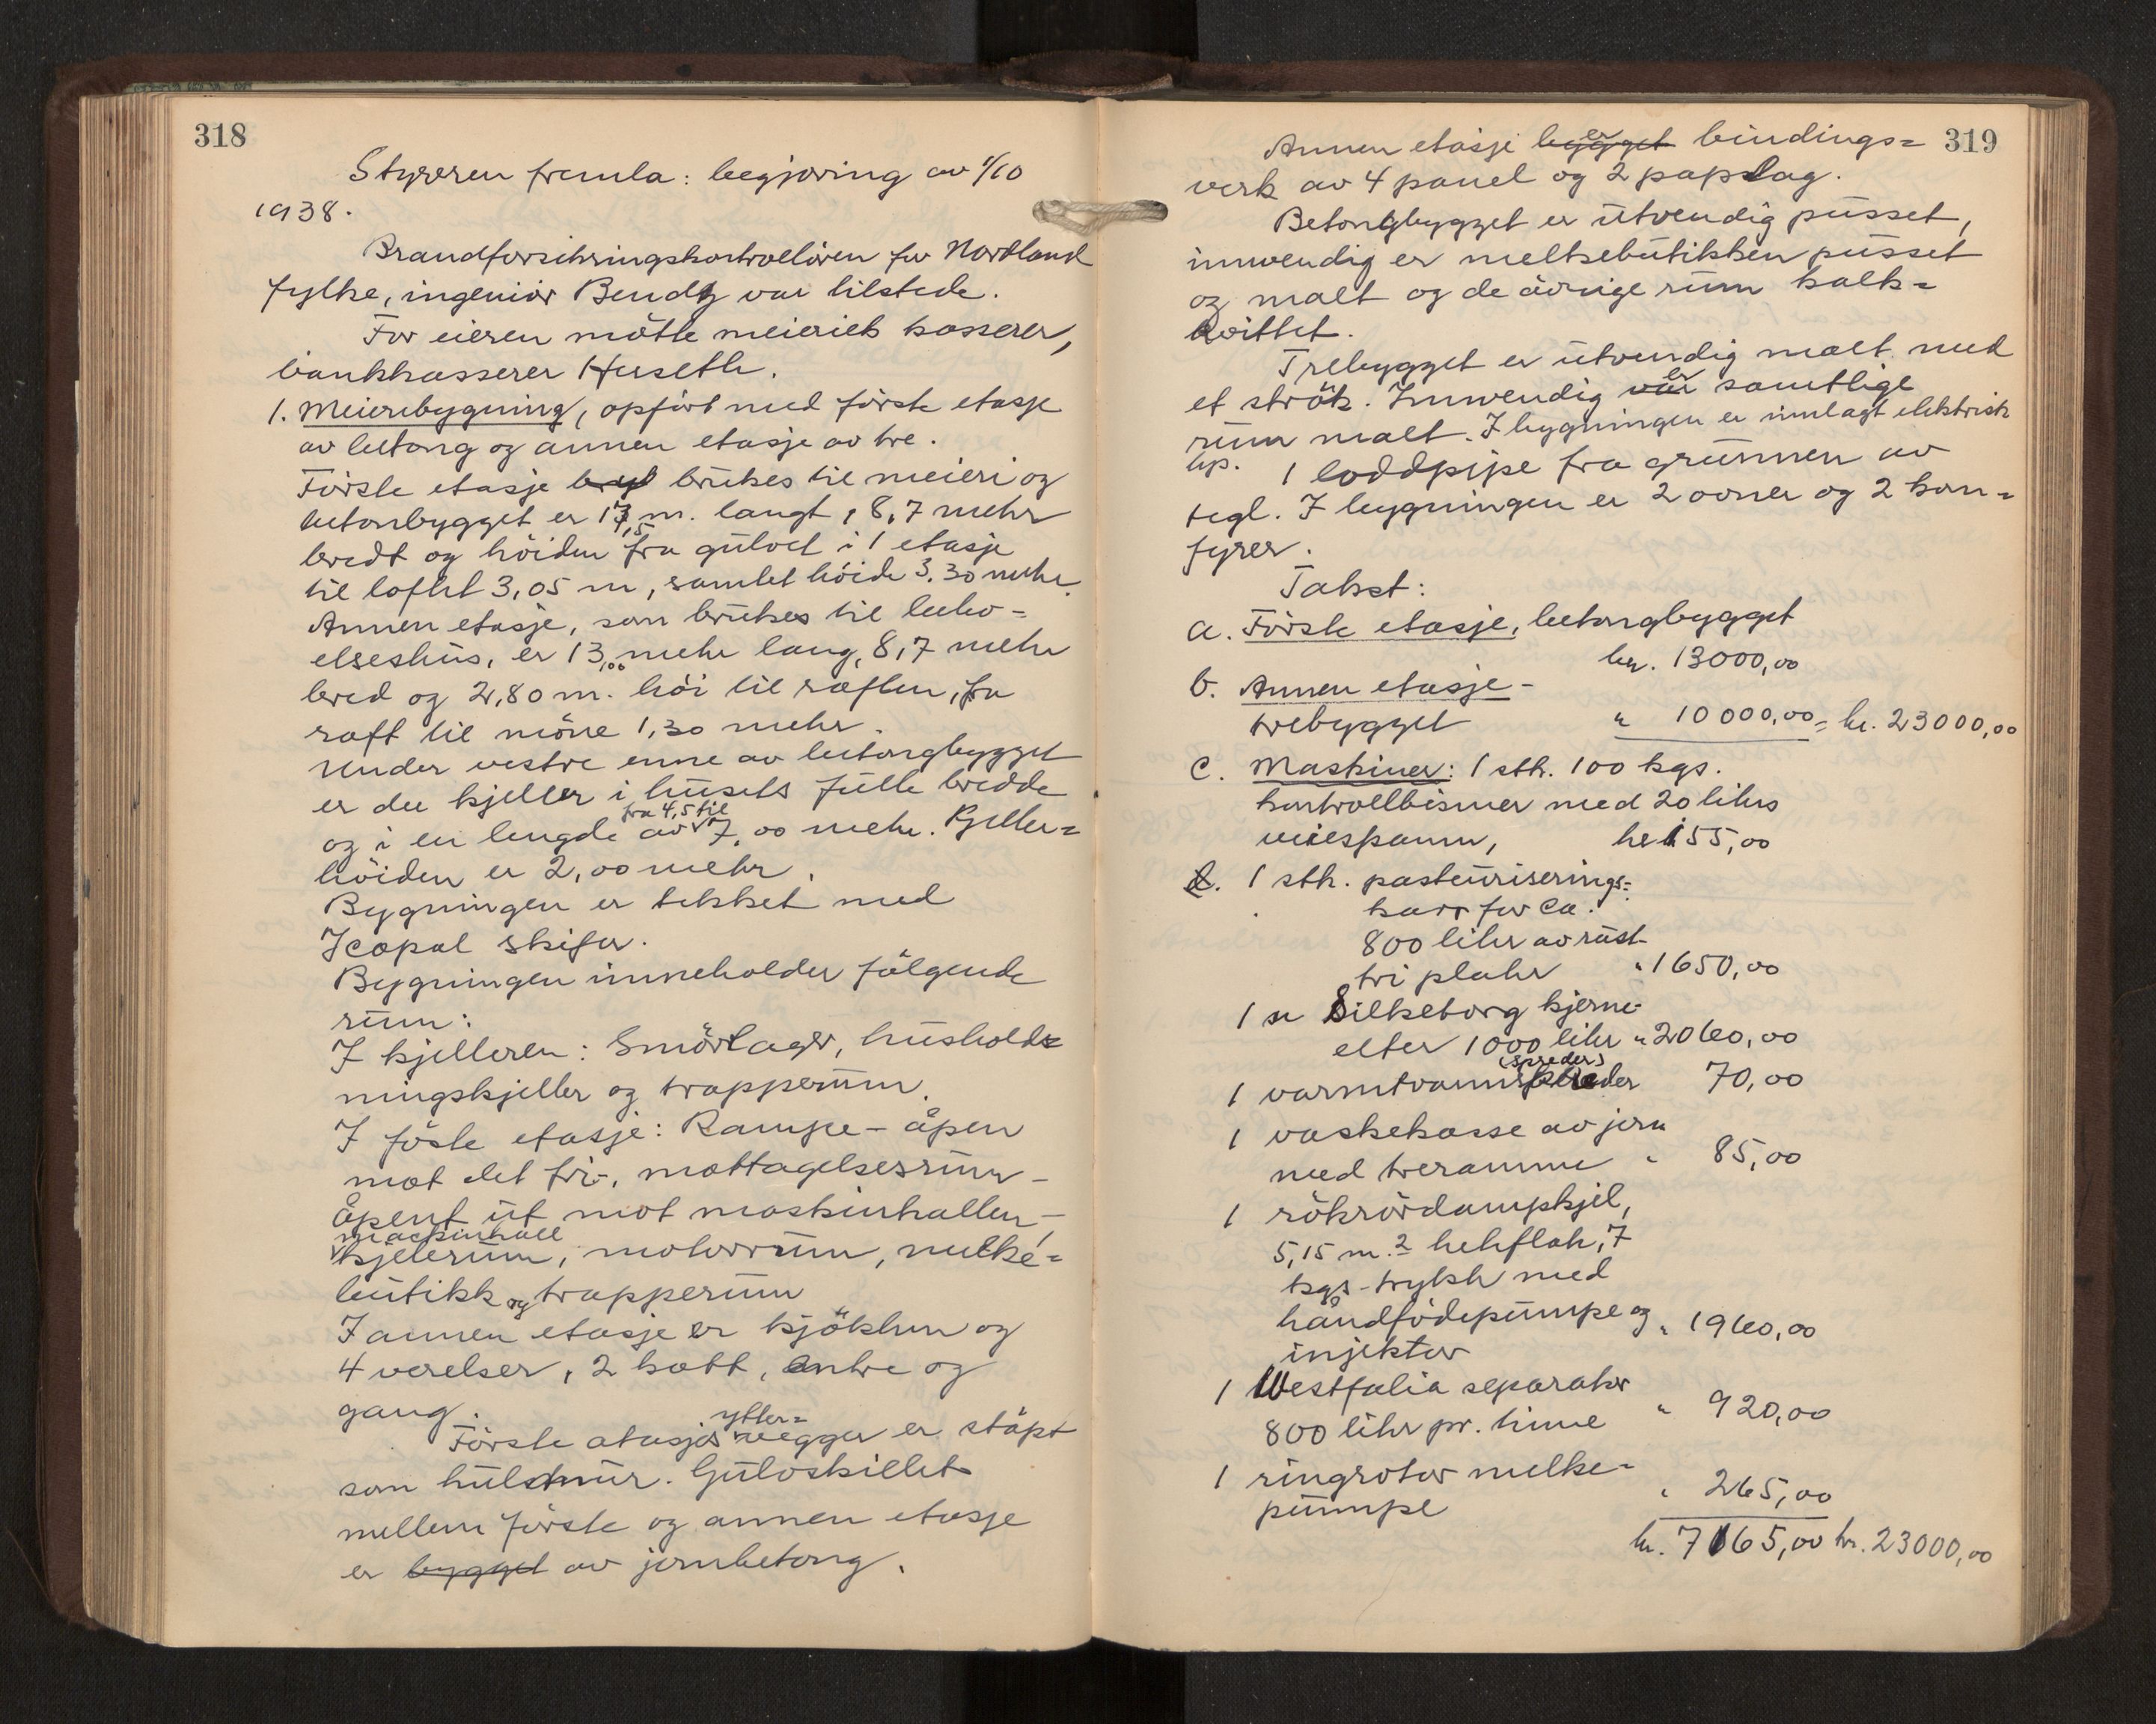 318
Styreren fremla: begjæring av 1/10
1938.
Brandforsikringskontrolløren for Nordland
fylke, ingeniør Bendtz var tilstede.
For eieren møtte meieriets kasserer,
bankkasserer Huseth.
1. Meieribygning, opført med første etasje
av betong og annen etasje av tre.
Første etasje brukes til meieri og
betonbygget er 17,5 m. langt, 8,7 meter
bredt og høiden fra gulvet i 1 etasje
til loftet 3,05 m, samlet høide 3,30 meter.
Annen etasje, som brukes til bebo=
elseshus, er 13,00 meter lang, 8,7 meter
bred og 2,80 m. høi til raften, fra
raft til møne 1,30 meter.
Under vestre enne av betongbygget
er der kjeller i husets fulle bredde
og i en lengde av fra 4,5 til 7,00 meter. Kjeller=
høiden er 2,00 meter.
Bygningen er tekket med
Icopal skifer.
Bygningen inneholder følgende
rum:
I kjelleren: Smørlager, hushold=
ningskjeller og trapperum.
I føste etasje: Rampe - åpen
mot det fri-, mottagelsesrum -
åpent ut mot maskinhallen -,
maskinhall
kjelerum, motorrum, melke=
butikk og trapperum
I annen etasje er kjøkken og
4 værelser, 2 kott, entre og
gang.
Første etasjes ytter=vegger er støpt
som hulmur. Gulvskillet
mellem første og annen etasje
er bygget av jernbetong.
319
Annen etasje bygget er bindings=
verk av 4 panel og 2 papplag.
Betongbygget er utvendig pusset,
innvendig er melkebutikken pusset
og malt og de øvrige rum kalk=
kvittet.
Trebygget er utvendig malt med
et strøk. Innvendig var er samtlige
rum malt. I bygningen er innlagt elektrisk
lys. 1 loddpipe fra grunnen av
tegl. I bygningen er 2 ovner og 2 kom=
fyrer.
Takst:
a. Første etasje, betongbygget
kr. 13000,00
b. Annen etasje -
trebygget " 10000,00 = kr. 23000,00
c. Maskiner: 1 stk. 100 kgs.
kontrollbismer med 20 liters
veiespann, kr 155,00
d. 1 stk. pasteuriserings=
kar for ca.
800 liter av rust-
fri plater " 1650,00
1 " Silkeborg kjerne-
elter 1000 liter " 2060,00
(spreder)
1 varmtvannspreder 70,00
1 vaskekasse av jern
med treramme " 85,00
1 røkrørdampkjel,
5,15 m.2 heteflate, 7
kgs - trykk med
håndfødepumpe og " 1960,00
injektor
1 Westfalia separator
800 liter pr. time " 920,00
1 ringrotor melke-
pumpe " 265,00
kr. 7165,00 kr. 23000,00